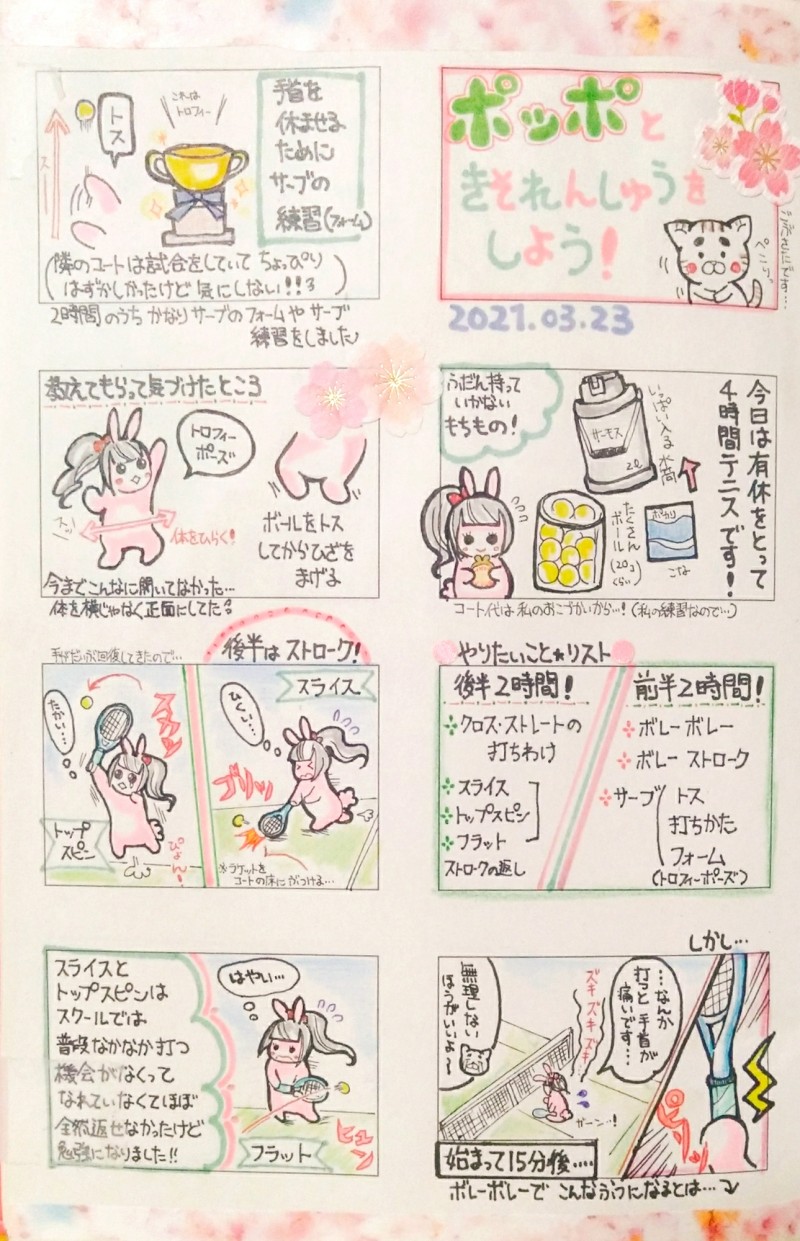 ポッポと
きそれんしゅうを
しよう!
ペコッ
2021.03.23
今日は有休をとって
4時間テニスです!
ふだん持って
いかない
もちもの!
いっぱい入る水筒
サーモス
2ℓ
たくさん
ボール
(20コ
くらい)
ポカリ
こな
コート代は私のおこづかいから…!(私の練習なので…)
やりたいこと★リスト
前半2時間!
ボレーボレー
ボレーストローク
サーブ
トス
打ちかた
フォーム
(トロフィーポーズ)
後半2時間!
クロス・ストレートの
打ちわけ
スライス
トップスピン
フラット
ストロークの返し
しかし…
…なんか
打つと手首が
痛いです…
ズキズキズキ
ピリッ
ガーン…!
無理しない
ほうがいいよ〜
始まって15分後….
ボレーボレーで こんなふうになるとは…
手首を
休ませる
ために
サーブの
練習(フォーム)
これは
トロフィー
トス
スー
(隣のコートは試合をしていて ちょっぴり
はずかしかったけど 気にしない!!)
2時間のうち かなりサーブのフォームやサーブ
練習をしました
教えてもらって気づけたところ
トロフィー
ポーズ
体をひらく!
ボールをトス
してからひざを
まげる
今までこんなに開いてなかった…
体を横じゃなく正面にしてた
手がだいぶ回復してきたので…
後半はストローク!
スライス
ひくい…
ゾリッ
※ラケットを
コートの床にがつける…
たかい…
トップ
スピン
ぴょん!
はやい…
フラット
ヒュン
スライスと
トップスピンは
スクールでは
普段なかなか打つ
機会がなくって
なれていなくてほぼ
全然返せなかったけど
勉強になりました!!